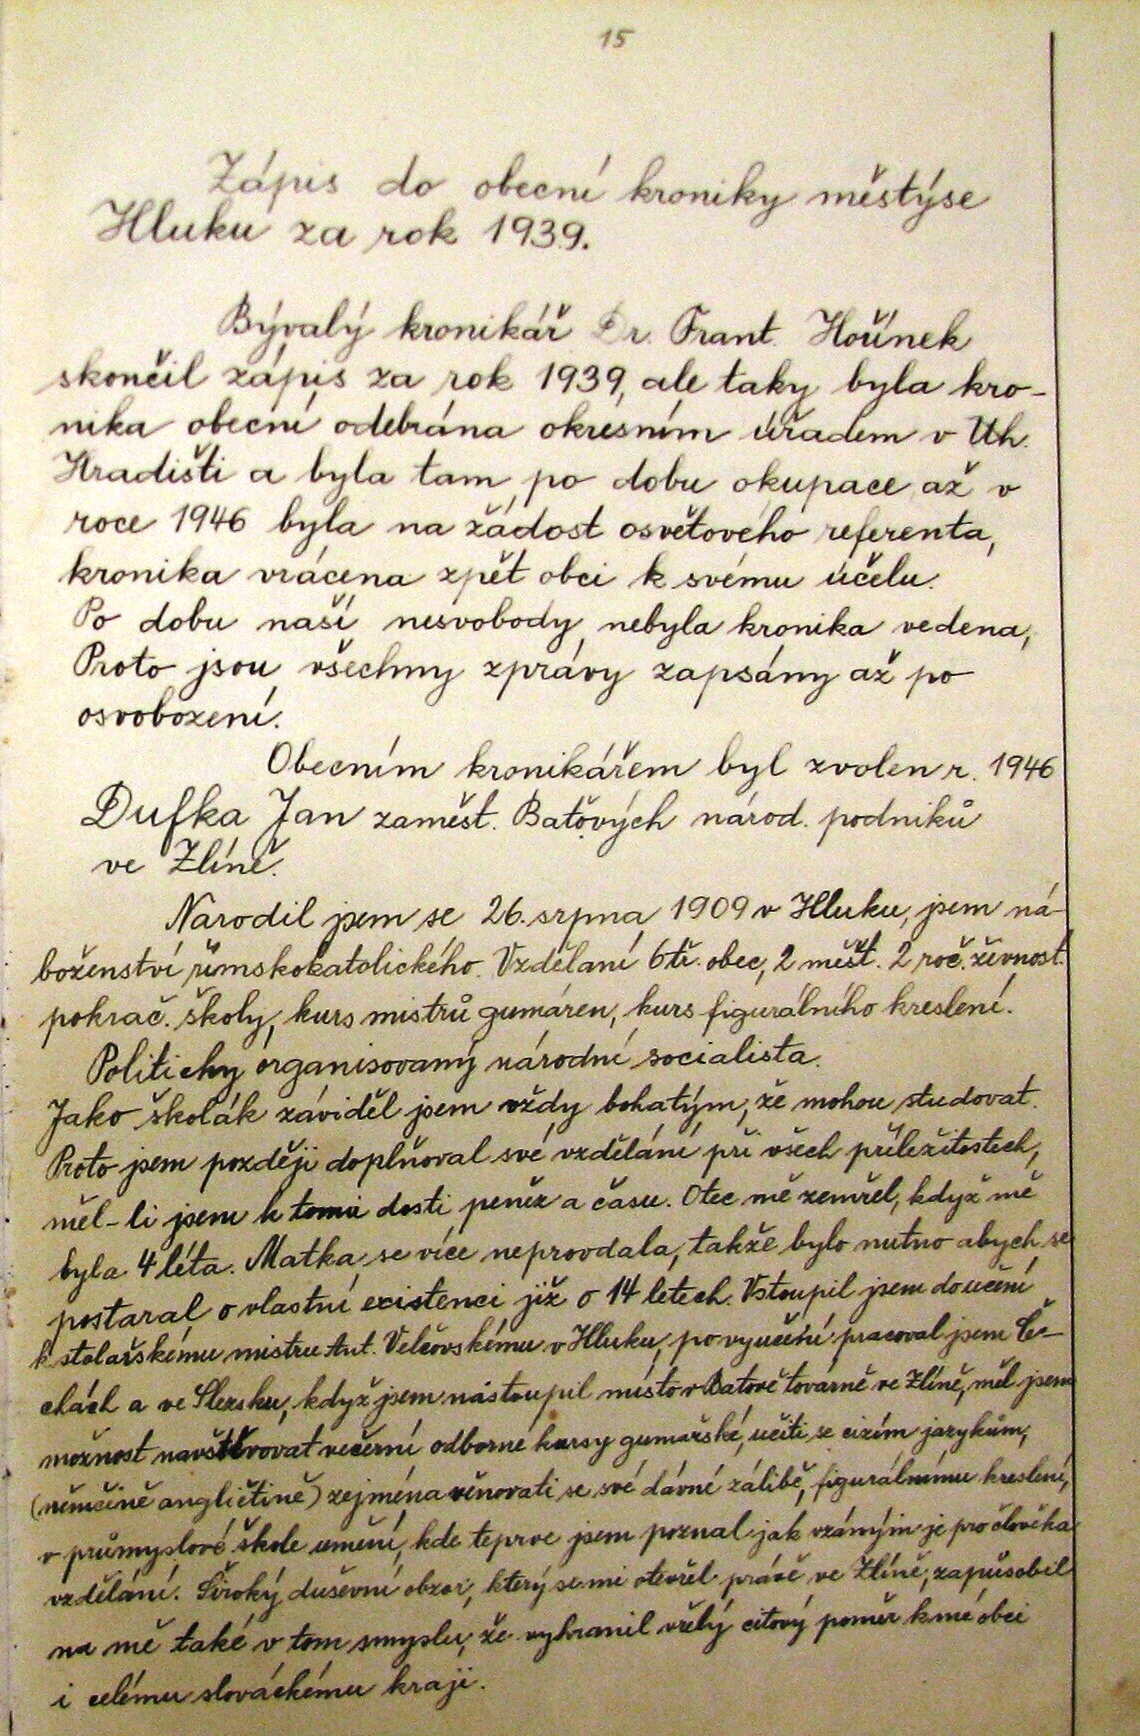 15
Zápis do obecní kroniky městýse
Hluku za rok 1939.
Bývalý kronikář Dr. Frant. Hořínek
skončil zápis za rok 1939, ale taky byla kro-
nika obecní odebrána okresním úřadem v Uh.
Hradišti a byla tam po dobu okupace až v
roce 1946 byla na žádost osvětového referenta,
kronika vrácena zpět obci k svému účelu.
Po dobu naší nesvobody nebyla kronika vedena,
Proto jsou všechny zprávy zapsány až po
osvobození.
Obecním kronikářem byl zvolen r. 1946
Dufka Jan zaměst. Baťových národ. podniků
ve Zlíně.
Narodil jsem se 26. srpna 1909 v Hluku, jsem ná-
boženství římskokatolického. Vzdělaní 6 tř. obec, 2 měšť. 2 roč. živnost.
pokrač. školy, kurs mistrů gumáren, kurs figurálního kreslení.
Politicky organisovaný národní socialista.
Jako školák záviděl jsem vždy bohatým, že mohou studovat.
Proto jsem později doplňoval své vzdělání při všech příležitostech,
měl-li jsem k tomu dosti peněz a času. Otec mě zemřel, když mě
byla 4 léta. Matka se více neprovdala, takže bylo nutno abych se
postaral o vlastní existenci již o 14 letech. Vstoupil jsem do učení
k stolařskému mistru Ant. Velčovskému v Hluku, po vyučení pracoval jsem Če-
chách a ve Slezsku, když jsem nastoupil místo v Batově továrně ve Zlíně, měl jsem
možnost navštěvovat večerní odborné kursy gumařské, učiti se cizím jazykům,
(němčině angličtině) zejména věnovati se své dávné zálibě, figurálnímu kreslení,
v průmyslové škole umění, kde teprve jsem poznal jak vzámým je pro člověka
vzdělání. Široký duševní obzor, který se mi otevřel právě ve Zlíně, zapůsobil
na mě také v tom smyslu, že vyhranil vřelý citový poměr k mé obci
i celému slováckému kraji.